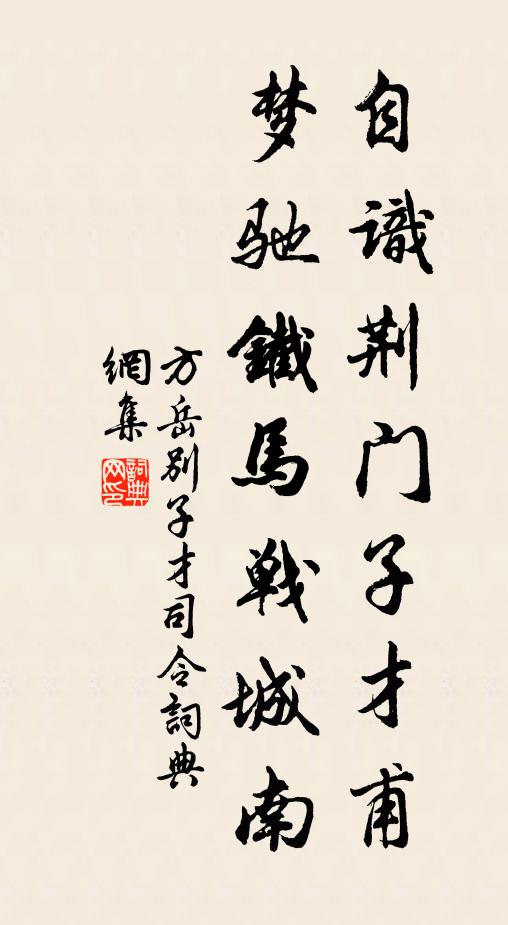 自識荆门子才甫
梦馳鐵馬戦城南
方岳别子才司令詞典
網集
詞典
网印